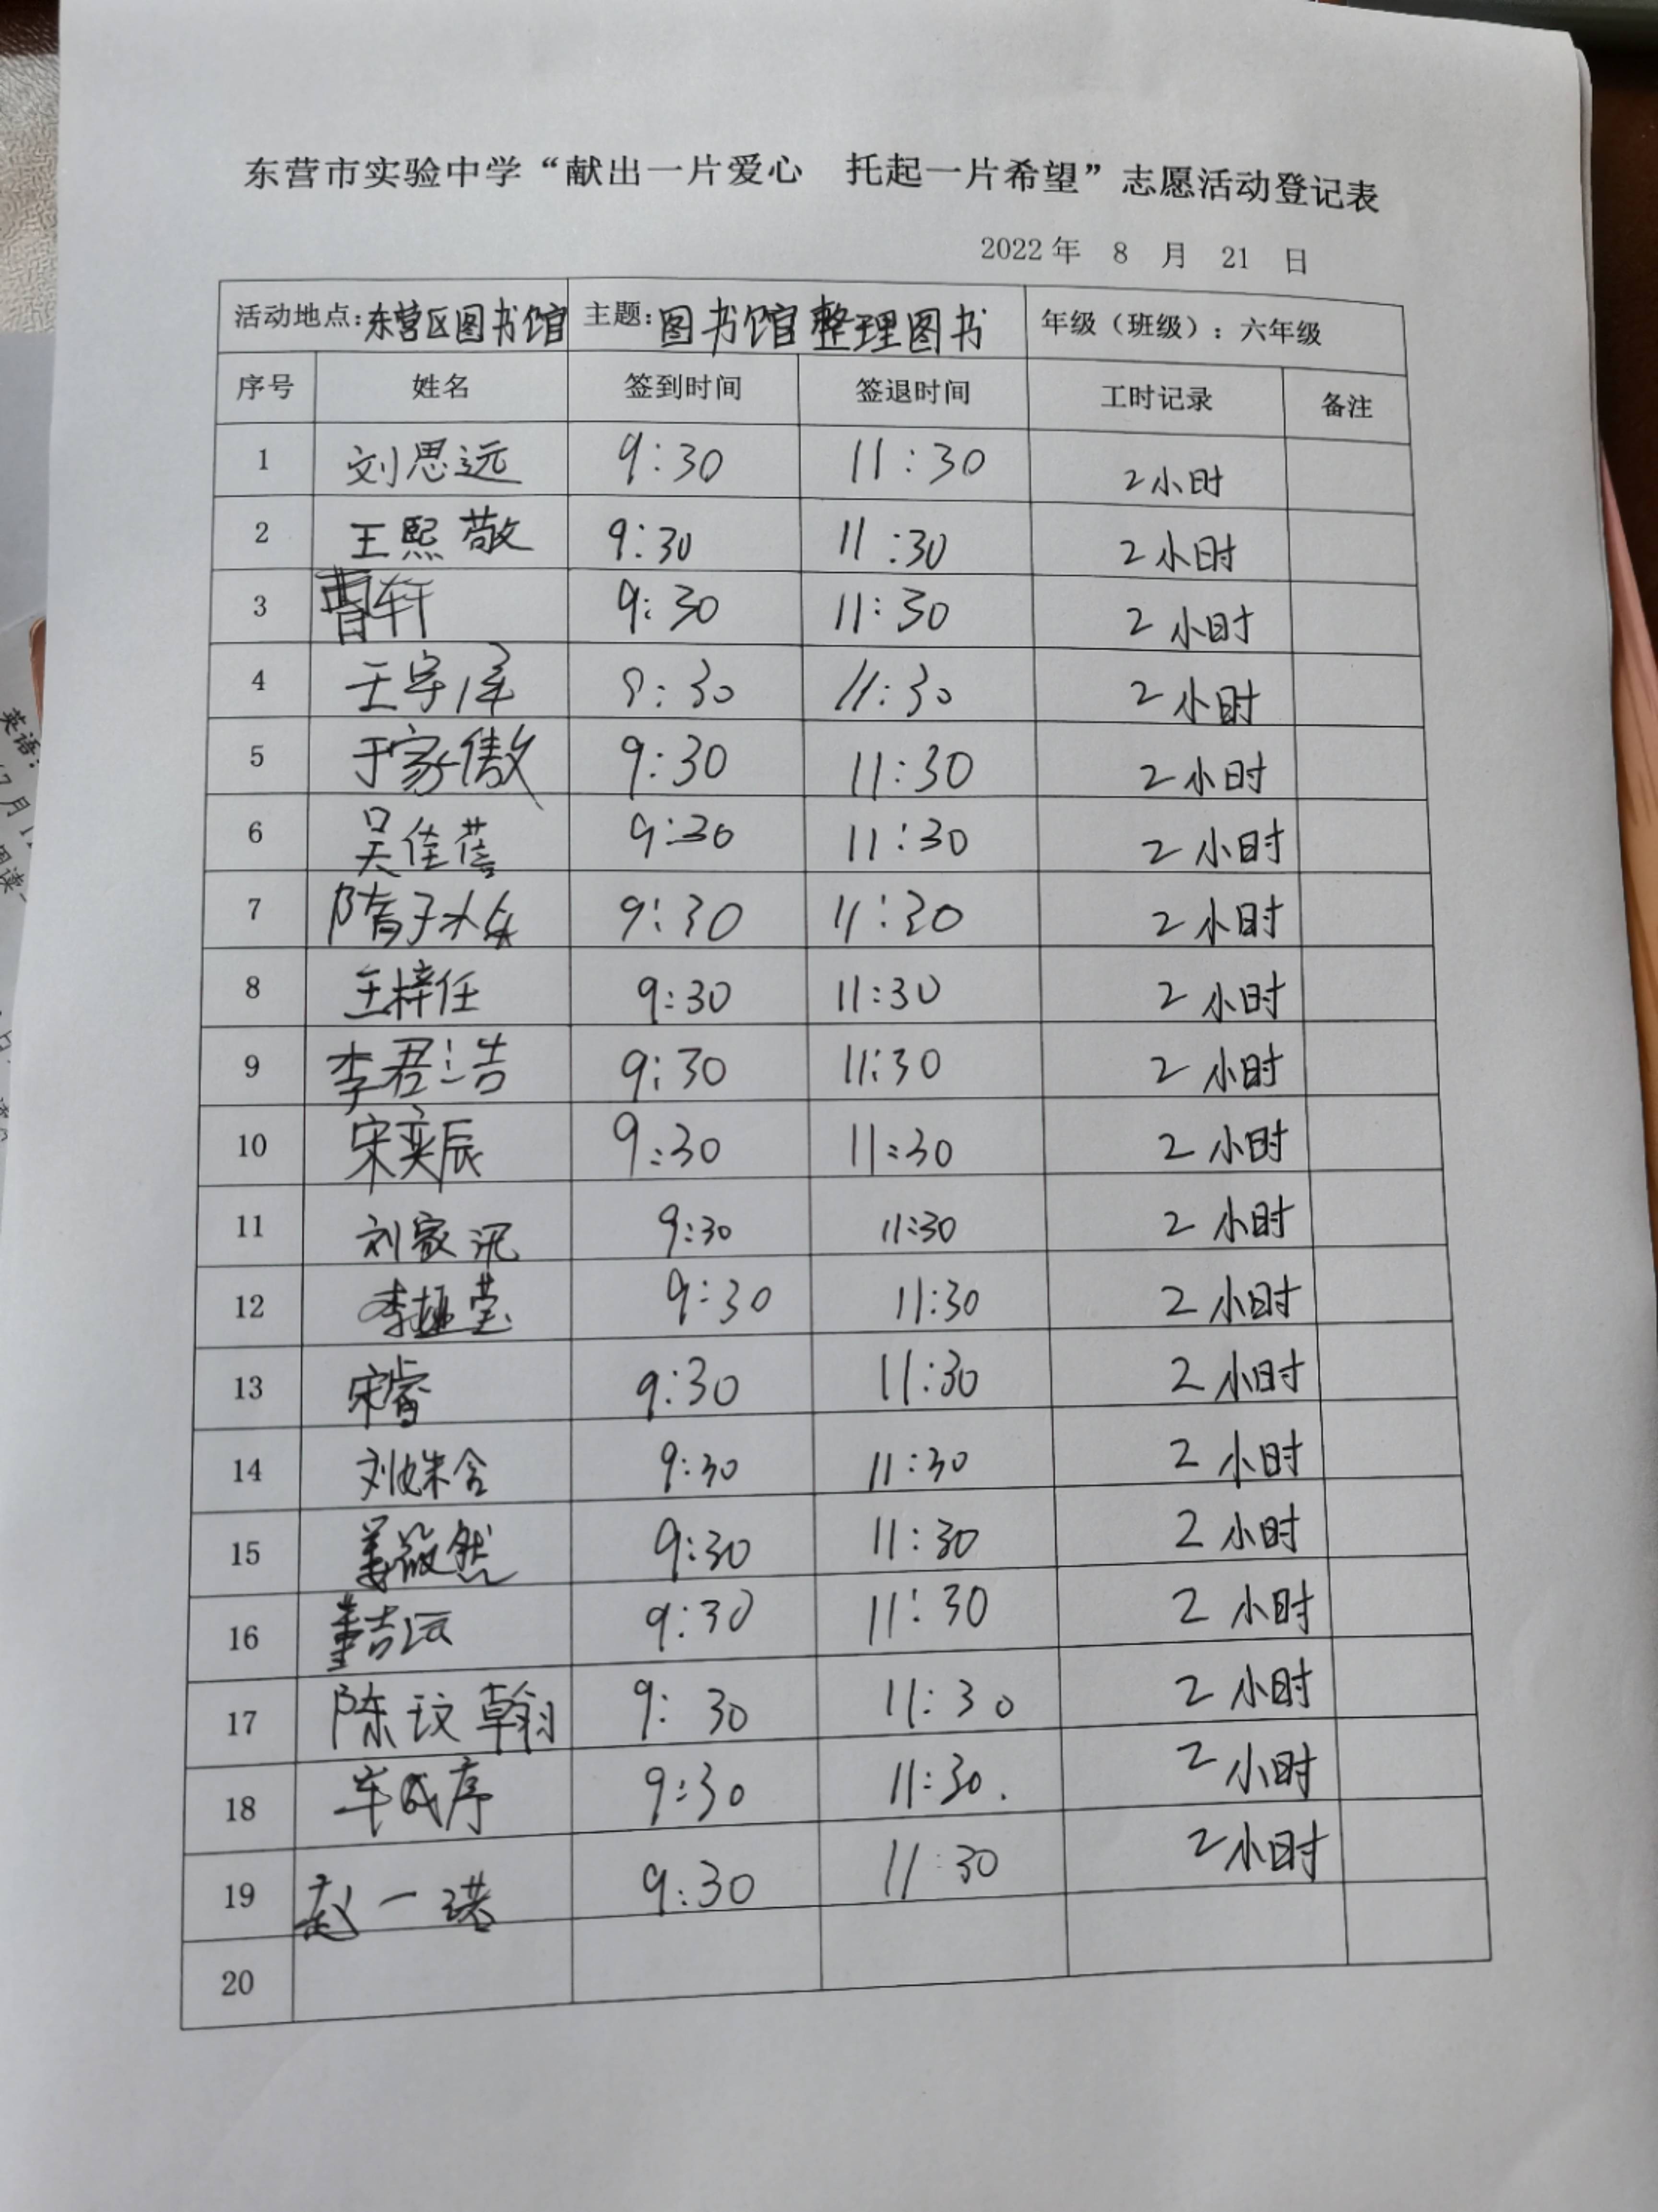 东营市实验中学“献出一片爱心 托起一片希望”志愿活动登记表
2022年 8 月 21 日
活动地点：东营区图书馆 主题：图书馆整理图书 年级（班级）：六年级
序号 姓名 签到时间 签退时间 工时记录 备注
1 刘思远 9:30 11:30 2小时
2 王熙敬 9:30 11:30 2小时
3 曹轩 9:30 11:30 2小时
4 王宇 9:30 11:30 2小时
5 于家傲 9:30 11:30 2小时
6 吴佳蓓 9:30 11:30 2小时
7 隋子 9:30 11:30 2小时
8 王梓任 9:30 11:30 2小时
9 李君浩 9:30 11:30 2小时
10 宋奕辰 9:30 11:30 2小时
11 刘家汛 9:30 11:30 2小时
12 李 莹 9:30 11:30 2小时
13 宋睿 9:30 11:30 2小时
14 刘姝含 9:30 11:30 2小时
15 姜筱然 9:30 11:30 2小时
16 董吉沄 9:30 11:30 2小时
17 陈玟翰 9:30 11:30 2小时
18 车成序 9:30 11:30. 2小时
19 赵一诺 9:30 11:30 2小时
20
英语：